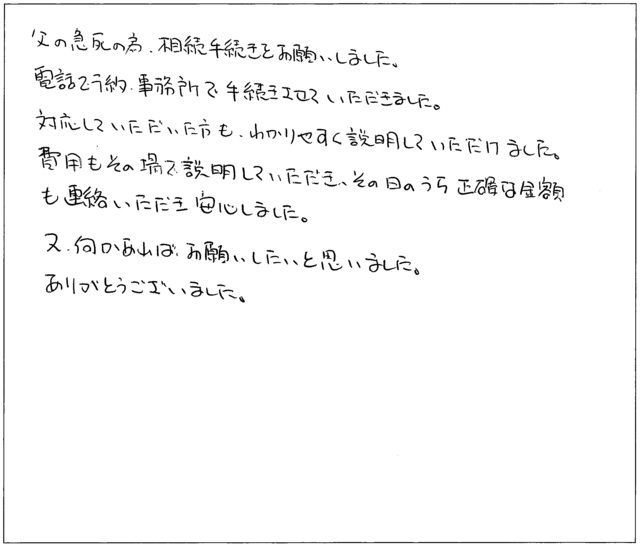 父の急死の為、相続手続きをお願いしました。
電話で予約、事務所で手続きさせていただきました。
対応していただいた方も、わかりやすく説明していただけました。
費用もその場で説明していただき、その日のうち正確な金額
も連絡いただき安心しました。
又、何かあれば、お願いしたいと思いました。
ありがとうございました。